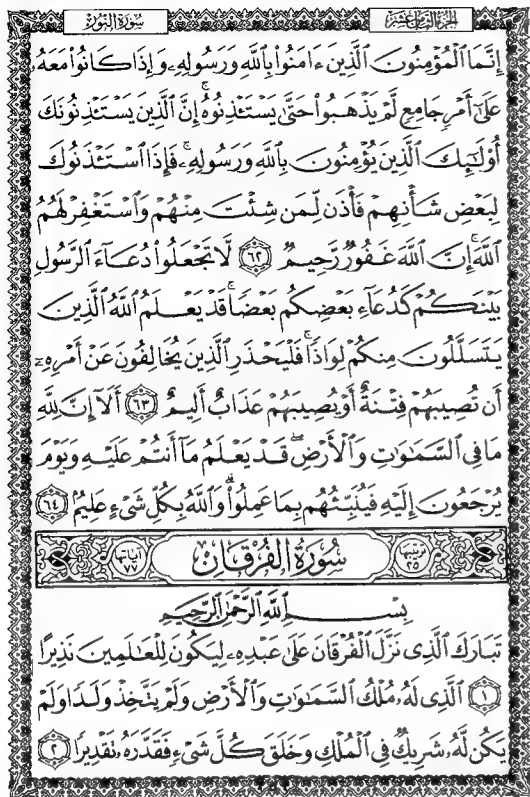 سورة النور الجزء الثامن عشر
إِنَّمَا الْمُؤْمِنُونَ الَّذِينَ ءَامَنُوا۟ بِاللَّهِ وَرَسُولِهِۦ وَإِذَا كَانُوا۟ مَعَهُۥ
عَلَىٰٓ أَمْرٍ جَامِعٍ لَّمْ يَذْهَبُوا۟ حَتَّىٰ يَسْتَـْٔذِنُوهُ ۚ إِنَّ الَّذِينَ يَسْتَـْٔذِنُونَكَ
أُو۟لَـٰٓئِكَ الَّذِينَ يُؤْمِنُونَ بِاللَّهِ وَرَسُولِهِۦ ۚ فَإِذَا اسْتَـْٔذَنُوكَ
لِبَعْضِ شَأْنِهِمْ فَأْذَن لِّمَن شِئْتَ مِنْهُمْ وَاسْتَغْفِرْ لَهُمُ
اللَّهَ ۚ إِنَّ اللَّهَ غَفُورٌ رَّحِيمٌ ٦٢ لَّا تَجْعَلُوا۟ دُعَآءَ الرَّسُولِ
بَيْنَكُمْ كَدُعَآءِ بَعْضِكُم بَعْضًا ۚ قَدْ يَعْلَمُ اللَّهُ الَّذِينَ
يَتَسَلَّلُونَ مِنكُمْ لِوَاذًا ۚ فَلْيَحْذَرِ الَّذِينَ يُخَالِفُونَ عَنْ أَمْرِهِۦٓ
أَن تُصِيبَهُمْ فِتْنَةٌ أَوْ يُصِيبَهُمْ عَذَابٌ أَلِيمٌ ٦٣ أَلَآ إِنَّ لِلَّهِ
مَا فِى السَّمَـٰوَٰتِ وَالْأَرْضِ ۖ قَدْ يَعْلَمُ مَآ أَنتُمْ عَلَيْهِ وَيَوْمَ
يُرْجَعُونَ إِلَيْهِ فَيُنَبِّئُهُم بِمَا عَمِلُوا۟ ۗ وَاللَّهُ بِكُلِّ شَىْءٍ عَلِيمٌۢ ٦٤
ترتيبها ٢٥ سُورَةُ الْفُرْقَانِ آياتها ٧٧
بِسْمِ اللَّهِ الرَّحْمَـٰنِ الرَّحِيمِ
تَبَارَكَ الَّذِى نَزَّلَ الْفُرْقَانَ عَلَىٰ عَبْدِهِۦ لِيَكُونَ لِلْعَـٰلَمِينَ نَذِيرًا
١ الَّذِى لَهُۥ مُلْكُ السَّمَـٰوَٰتِ وَالْأَرْضِ وَلَمْ يَتَّخِذْ وَلَدًا وَلَمْ
يَكُن لَّهُۥ شَرِيكٌ فِى الْمُلْكِ وَخَلَقَ كُلَّ شَىْءٍ فَقَدَّرَهُۥ تَقْدِيرًا ٢